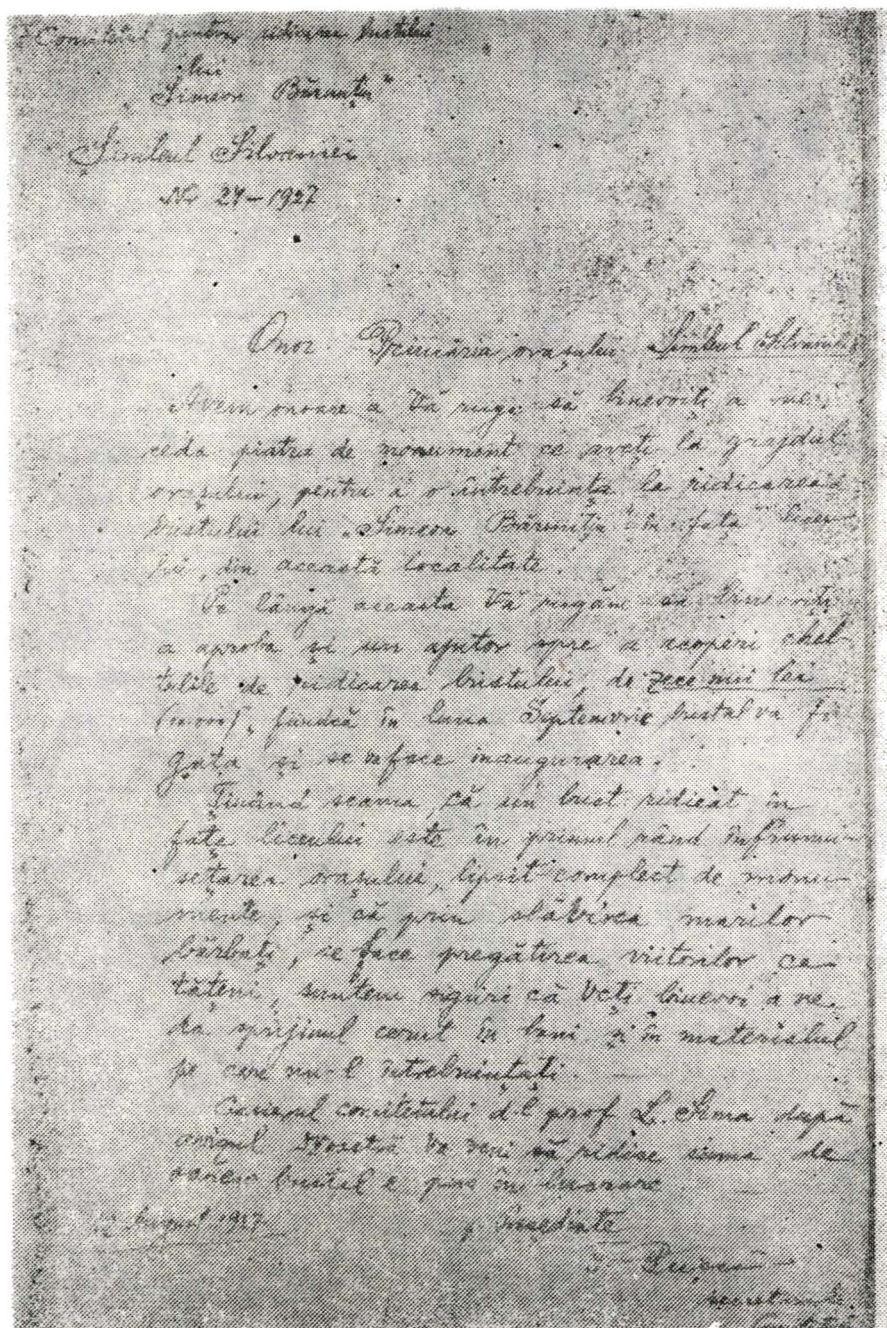 Comitetul pentru ridicarea bustului
lui
"Simeon Bărnuțiu"
Șimleul Silvaniei
No 24-1927
Onor. Primăria orașului Șimleul Silvaniei
Avem onoare a Vă ruga să binevoiți a ne
ceda piatra de monument ce aveți la grajdul
orașului, pentru a o întrebuința la ridicarea
bustului lui "Simeon Bărnuțiu" în fața liceu-
lui, din această localitate.
Pe lângă aceasta Vă rugăm să binevoiți
a aproba și un ajutor spre a acoperi chel-
tuelile de ridicarea bustului, de zece mii lei
fiindcă în luna Septemvrie bustul va fi
gata și se va face inaugurarea.
Ținând seama, că un bust ridicat în
fața liceului este în primul rând înfrumu-
sețarea orașului, lipsit complect de monu-
mente, și că prin slăvirea marilor
bărbați, se face pregătirea viitorilor ce-
tățeni, suntem siguri că Veți binevoi a ne
da sprijinul cerut în bani și în materialul
pe care nu-l întrebuințați.
Casierul comitetului d-l prof. L. Sima după
avizul Dvoastră va veni să ridice suma de
oarece bustul e pus în lucrare
August 1927.
p. Președinte
secretarul